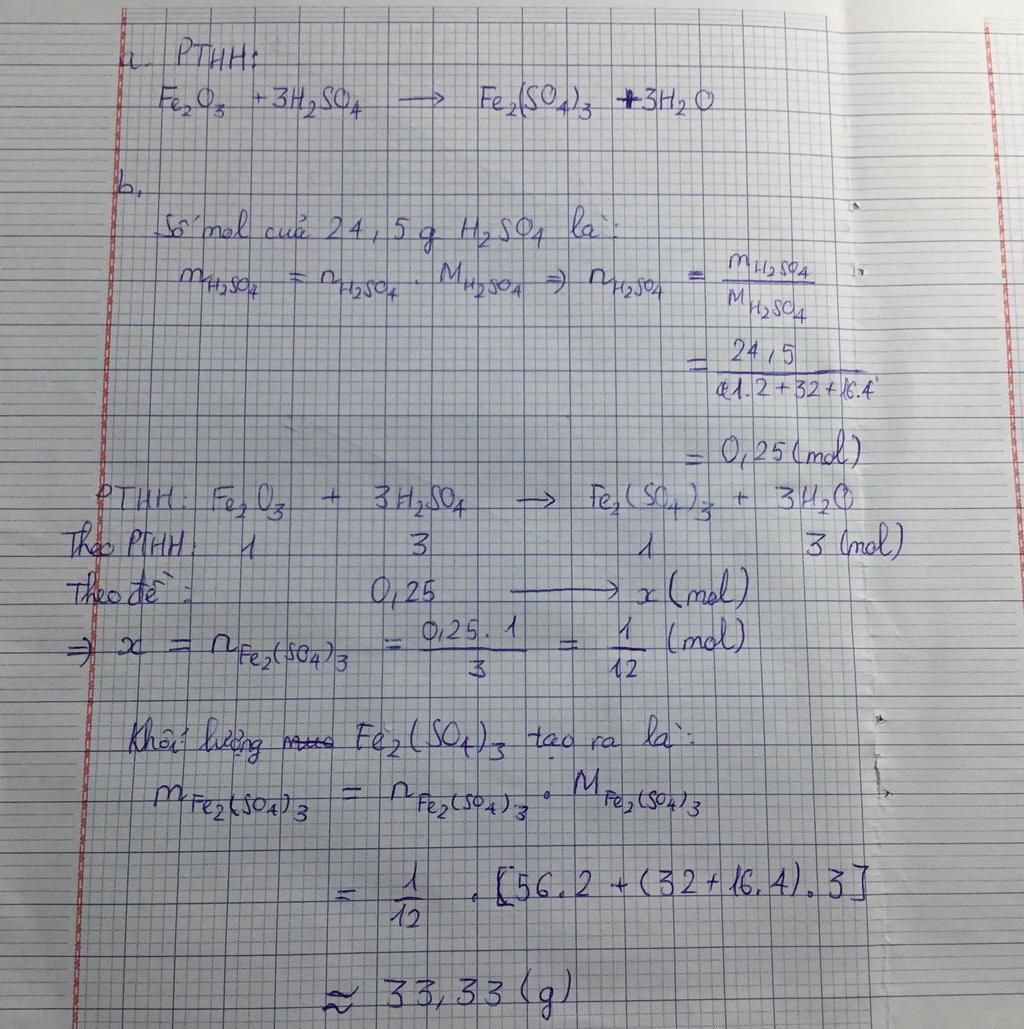 a. PTHH:
Fe₂O₃ + 3H₂SO₄ → Fe₂(SO₄)₃ + 3H₂O
b.
Số mol của 24,5 g H₂SO₄ là:
m_H₂SO₄ = n_H₂SO₄ . M_H₂SO₄ => n_H₂SO₄ = m_H₂SO₄ / M_H₂SO₄
= 24,5 / 1.2 + 32 + 16.4
= 0,25 (mol)
PTHH: Fe₂O₃ + 3H₂SO₄ → Fe₂(SO₄)₃ + 3H₂O
Theo PTHH: 1 3 1 3 (mol)
Theo đề: 0,25 → x (mol)
=> x = n_Fe₂(SO₄)₃ = 0,25.1 / 3 = 1/12 (mol)
Khối lượng Fe₂(SO₄)₃ tạo ra là:
m_Fe₂(SO₄)₃ = n_Fe₂(SO₄)₃ . M_Fe₂(SO₄)₃
= 1/12 . [56.2 + (32 + 16.4).3]
≈ 33,33 (g)